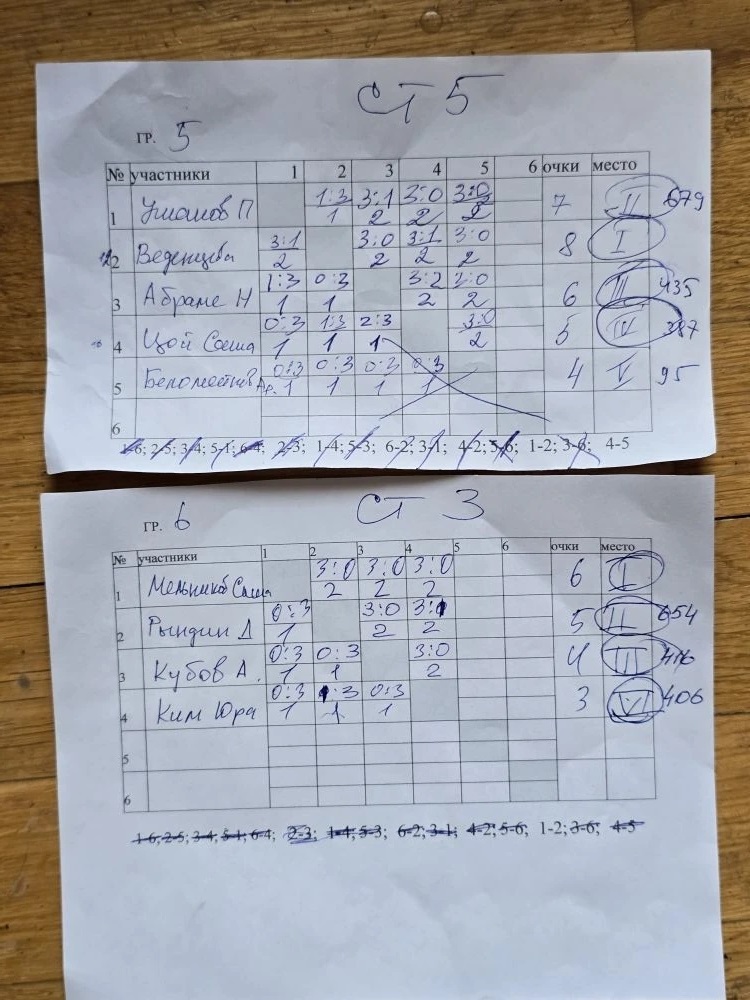 СТ 5
ГР. 5
№ участники 1 2 3 4 5 6 очки место
1 Уманов П 1:3 3:1 3:0 3:0 7 II 679
1 2 2 2
2 Веденцева 3:1 3:0 3:1 3:0 8 I
2 2 2 2
3 Абраме Н 1:3 0:3 3:2 3:0 6 III 435
1 1 2 2
4 Цой Саша 0:3 1:3 2:3 3:0 5 IV 387
1 1 1 2
5 0:3 0:3 0:3 0:3 4 V 95
1 1 1 1
6
1-6; 2-5; 3-4; 5-1; 6-4; 2-3; 1-4; 5-3; 6-2; 3-1; 4-2; 5-6; 1-2; 3-6; 4-5
СТ 3
ГР. 6
№ участники 1 2 3 4 5 6 очки место
1 Мельников Саша 3:0 3:0 3:0 6 I
2 2 2
2 Рындин Д 0:3 3:0 3:1 5 II 654
1 2 2
3 Кубов А. 0:3 0:3 3:0 4 III 416
1 1 2
4 Ким Юра 0:3 1:3 0:3 3 VI 406
1 1 1
5
6
1-6; 2-5; 3-4; 5-1; 6-4; 2-3; 1-4; 5-3; 6-2; 3-1; 4-2; 5-6; 1-2; 3-6; 4-5